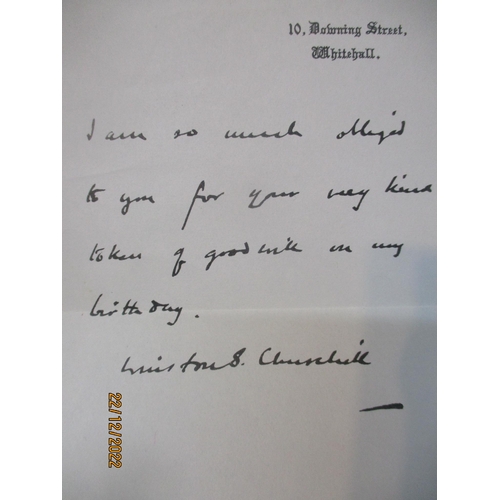 10, Downing Street,
Whitehall.
I am so much obliged
to you for your very kind
token of goodwill on my
birthday.
Winston S. Churchill
22/12/2022